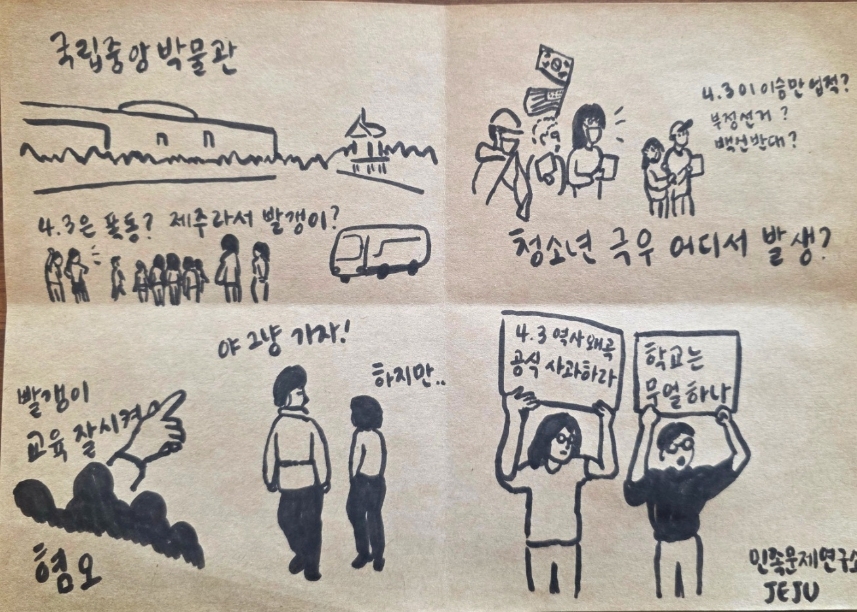 국립중앙박물관
4.3은 폭동? 제주라서 빨갱이?
4.3이 이승만 업적?
부정선거?
백신반대?
청소년 극우 어디서 발생?
빨갱이
교육 잘시켜
혐오
야 그냥 가자!
하지만..
4.3 역사왜곡
공식 사과하라
학교는
무얼하나
민족문제연구소
JEJU